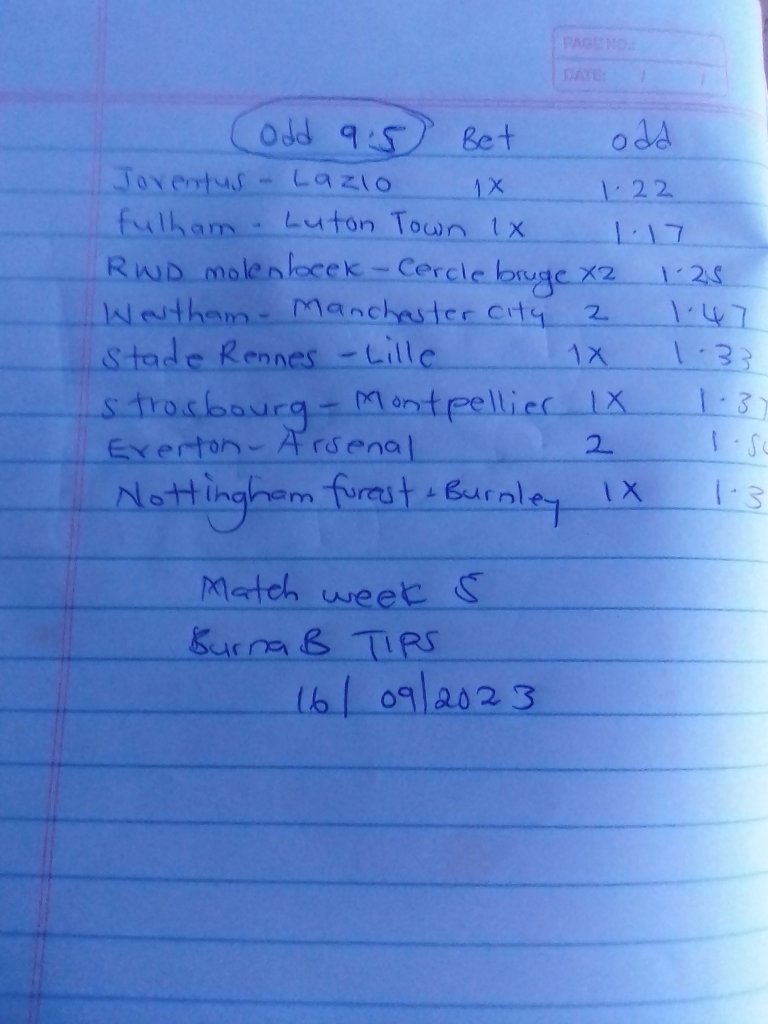 PAGE NO.:
DATE: / /
Odd 9:5 Bet odd
Joventus - Lazio 1X 1.22
fulham - Luton Town 1X 1.17
RWD molenbeek - Cercle bruge X2 1.25
Westham - Manchester city 2 1.47
Stade Rennes - Lille 1X 1.33
Strosbourg - Montpellier 1X 1.37
Everton - Arsenal 2
Nottingham forest - Burnley 1X 1.3
Match week 5
Burna B TIPS
16/09/2023